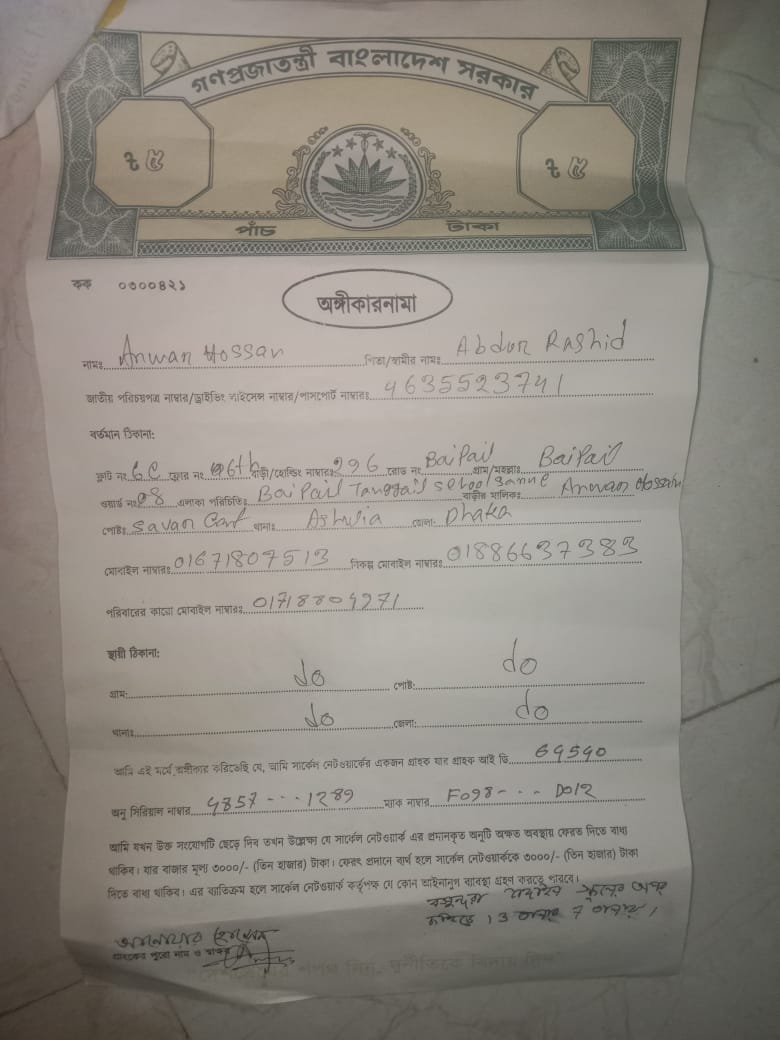 গণপ্রজাতন্ত্রী বাংলাদেশ সরকার
৳ ৫ ৳ ৫
পাঁচ টাকা
কক ০৩০০৪২১
অঙ্গীকারনামা
নামঃ Anwar Hossan পিতা/স্বামীর নামঃ Abdur Rashid
জাতীয় পরিচয়পত্র নাম্বার/ড্রাইভিং লাইসেন্স নাম্বার/পাসপোর্ট নাম্বারঃ 4635523741
বর্তমান ঠিকানা:
ফ্লাট নং 6C ফ্লোর নং 6th বাড়ী/হোল্ডিং নাম্বারঃ 296 রোড নং BaiPail গ্রাম/মহল্লাঃ BaiPail
ওয়ার্ড নং 08 এলাকা পরিচিতিঃ BaiPail Tanggail School বাড়ীর মালিকঃ Anwar Hossain
পোষ্টঃ Savan Cant থানাঃ Ashulia জেলা: Dhaka
মোবাইল নাম্বারঃ 01671807513 বিকল্প মোবাইল নাম্বারঃ 01886637383
পরিবারের কারো মোবাইল নাম্বারঃ 01718804971
স্থায়ী ঠিকানা:
গ্রাম: do পোষ্ট: do
থানাঃ do জেলা: do
আমি এই মর্মে অঙ্গীকার করিতেছি যে, আমি সার্কেল নেটওয়ার্কের একজন গ্রাহক যার গ্রাহক আই ডি 69590
অনু সিরিয়াল নাম্বার 4857---1289 ম্যাক নাম্বার F098--- D012
আমি যখন উক্ত সংযোগটি ছেড়ে দিব তখন উল্লেক্ষ্য যে সার্কেল নেটওয়ার্ক এর প্রদানকৃত অনুটি অক্ষত অবস্থায় ফেরত দিতে বাধ্য
থাকিব। যার বাজার মূল্য ৩০০০/- (তিন হাজার) টাকা। ফেরৎ প্রদানে ব্যর্থ হলে সার্কেল নেটওয়ার্ককে ৩০০০/- (তিন হাজার) টাকা
দিতে বাধ্য থাকিব। এর ব্যতিক্রম হলে সার্কেল নেটওয়ার্ক কর্তৃপক্ষ যে কোন আইনানুগ ব্যবস্থা গ্রহণ করতে পারবে।
আনোয়ার হোসেন
গ্রাহকের পুরো নাম ও স্বাক্ষর